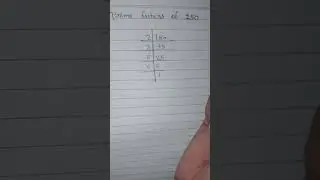 Prime factors of 150
2 | 150
3 | 75
5 | 25
5 | 5
1